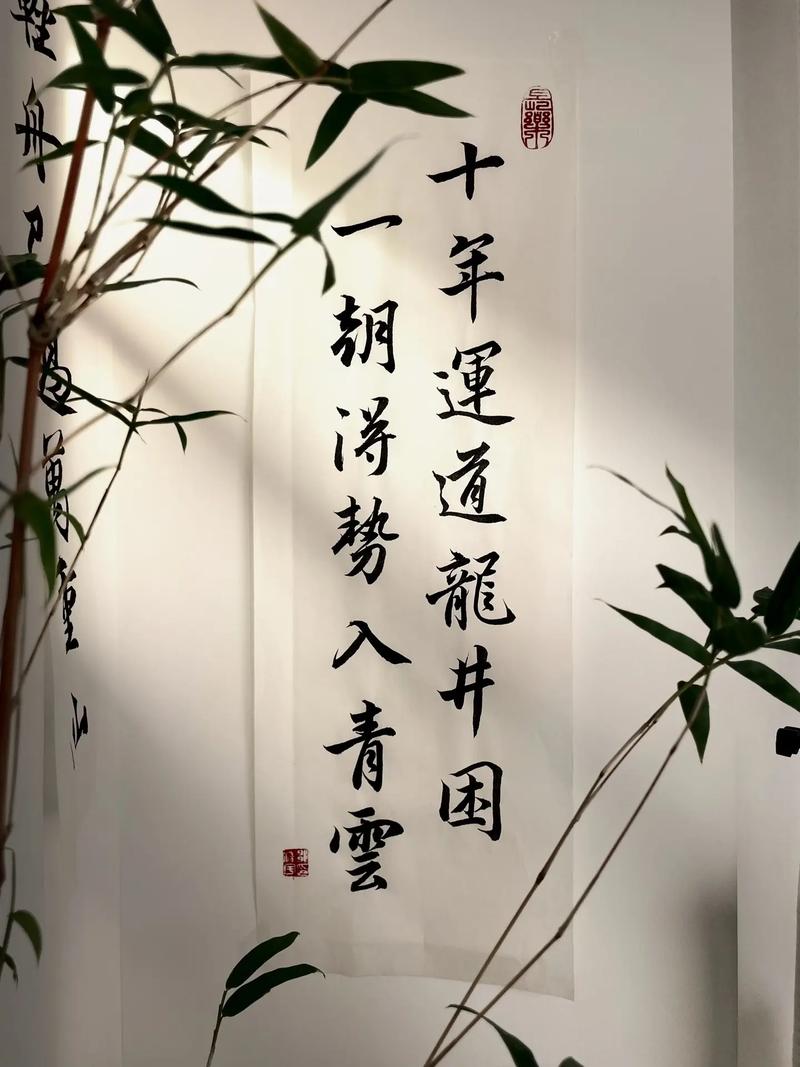 十年運道龍井困
一朝得勢入青雲
輕舟已過萬重山